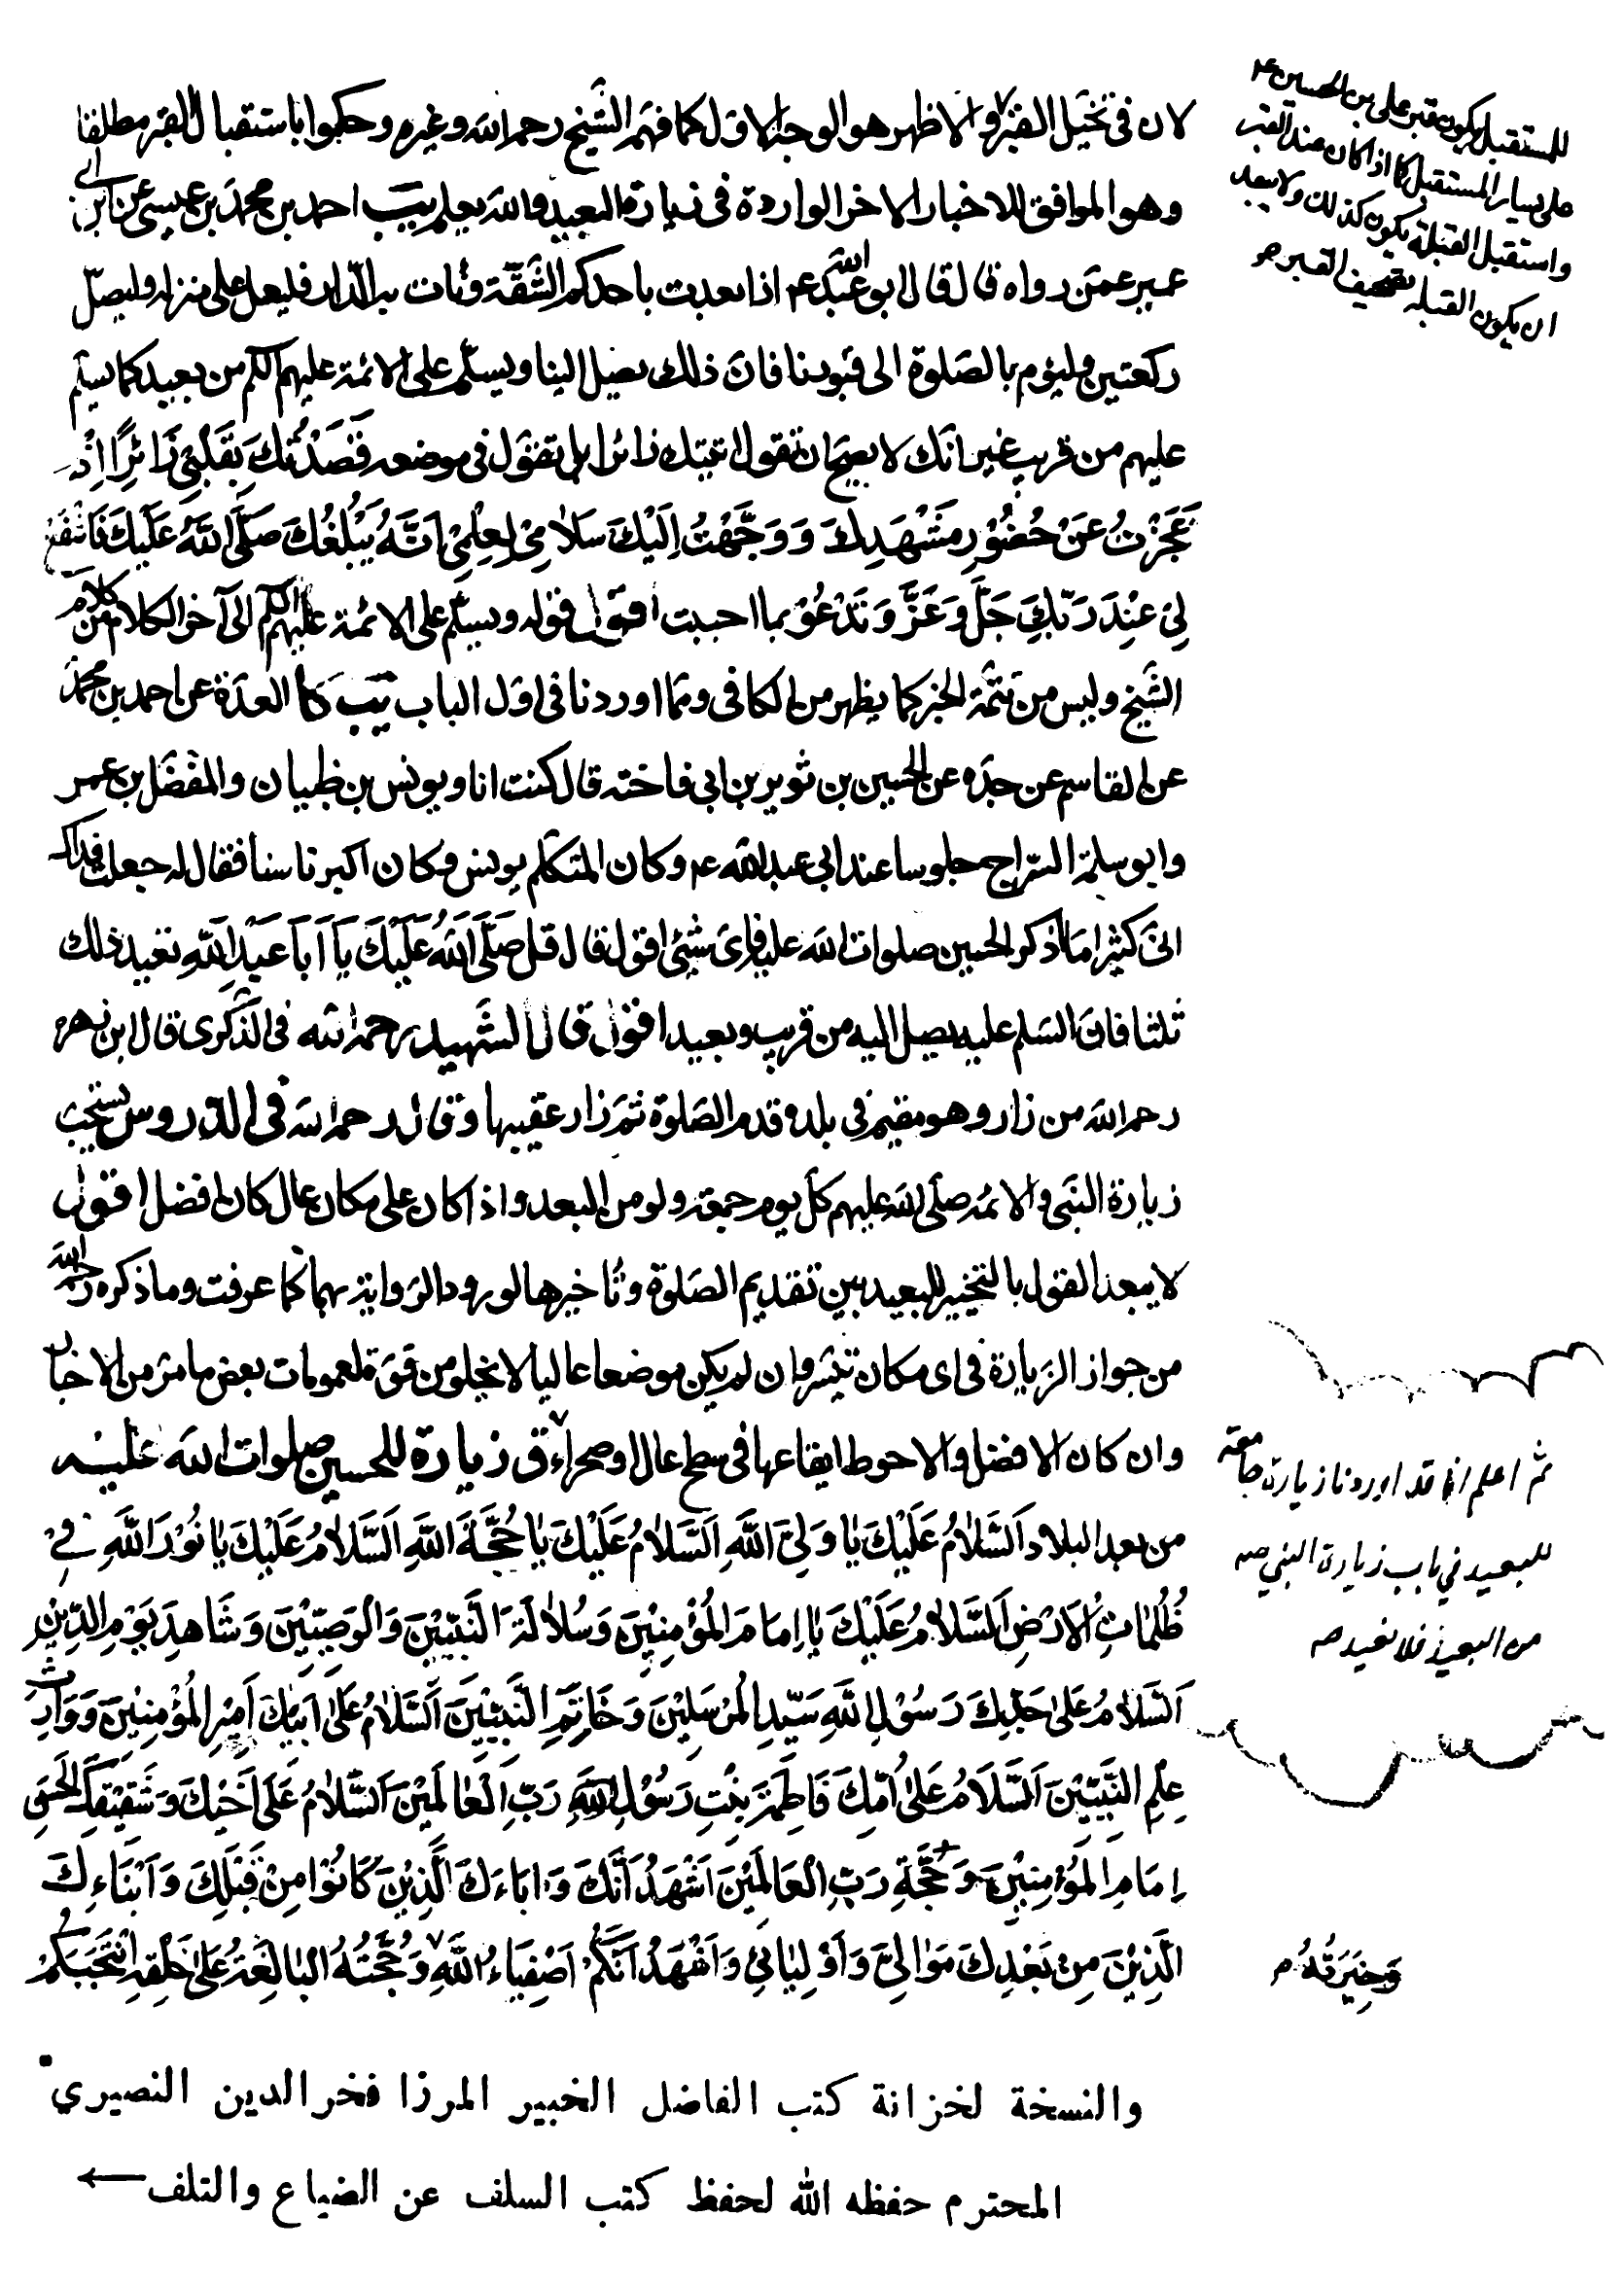 لان فى تخيل القبر والاظهر هو الوجه الاول كما فهم الشيخ رحمه الله وغيره وحكموا باستقبال القبر مطلقا
وهو الموافق للاخبار الاخر الواردة فى زيارة البعيد والله يعلم يب احمد بن محمد بن عيسى عن ابن ابى
عمير عمن رواه قال قال ابو عبد الله ع اذا بعدت باحدكم الشقة ونات به الدار فليعل على منزله وليصل
ركعتين وليؤم بالصلوة الى قبورنا فان ذلك يصل الينا ويسلم على الائمة عليهم السلم من بعيد كما يسلم
عليهم من قريب غير انك لا يصح ان تقول اتيتك زائرا بل تقول فى موضعه قَصَدْتُكَ بِقَلْبِي زَائِرًا اِذْ
عَجَزْتُ عَنْ حُضُوْرِ مَشْهَدِكَ وَوَجَّهْتُ اِلَيْكَ سَلَامِىْ لِعِلْمِىْ اَنَّهُ يَبْلُغُكَ صَلَّى اللهُ عَلَيْكَ فَاشْفَعْ
لِىْ عِنْدَ رَبِّكَ جَلَّ وَعَزَّ وَتَدْعُوْ بما احببت اقول قوله ويسلم على الائمة عليهم السلم الى آخر الكلام من كلام
الشيخ وليس من تتمة الخبر كما يظهر من الكافى ومما اوردنا فى اول الباب يب كا العدة عن احمد بن محمد
عن القاسم عن جده عن الحسين بن ثوير بن ابى فاخته قال كنت انا ويونس بن ظبيان والمفضل بن عمر
وابو سلمة السراج جلوسا عند ابى عبد الله ع وكان المتكلم يونس وكان اكبرنا سنا فقال له جعلت فداك
انى كثيرا ما اذكر الحسين صلوات الله عليه فاى شئ اقول قال قل صَلَّى اللهُ عَلَيْكَ يَا اَبَا عَبْدِ اللهِ تعيد ذلك
ثلثا فان السلم عليه يصل اليه من قريب وبعيد اقول قال الشهيد رحمه الله فى الذكرى قال ابن زهره
رحمه الله من زار وهو مقيم فى بلده قدم الصلوة ثم زار عقيبها وقال رحمه الله فى الدروس يستحب
زيارة النبى والائمة صلى الله عليهم كل يوم جمعة ولو من البعد واذا كان على مكان عال كان افضل اقول
لا يبعد القول بالتخيير للبعيد بين تقديم الصلوة وتاخيرها لورود الرواية بهما كما عرفت وما ذكره رحمه الله
من جواز الزيارة فى اى مكان تيسر وان لم يكن موضعا عاليا لا يخلو من قوة لعمومات بعض ما مر من الاخبار
وان كان الافضل والاحوط ايقاعها فى سطح عال او صحراء ق زيارة للحسين صلوات الله عليه
من بعد البلاد اَلسَّلَامُ عَلَيْكَ يَا وَلِىَّ اللهِ اَلسَّلَامُ عَلَيْكَ يَا حُجَّةَ اللهِ اَلسَّلَامُ عَلَيْكَ يَا نُوْرَ اللهِ فِىْ
ظُلُمَاتِ الْاَرْضِ اَلسَّلَامُ عَلَيْكَ يَا اِمَامَ الْمُؤْمِنِيْنَ وَسُلَالَةَ النَّبِيِّيْنَ وَالْوَصِيِّيْنَ وَشَاهِدَ يَوْمِ الدِّيْنِ
اَلسَّلَامُ عَلَى جَدِّكَ رَسُوْلِ اللهِ سَيِّدِ الْمُرْسَلِيْنَ وَخَاتِمِ النَّبِيِّيْنَ اَلسَّلَامُ عَلَى اَبِيْكَ اَمِيْرِ الْمُؤْمِنِيْنَ وَوَارِثِ
عِلْمِ النَّبِيِّيْنَ اَلسَّلَامُ عَلَى اُمِّكَ فَاطِمَةَ بِنْتِ رَسُوْلِ اللهِ رَبِّ الْعَالَمِيْنَ اَلسَّلَامُ عَلَى اَخِيْكَ وَشَقِيْقِكَ الْحَسَنِ
اِمَامِ الْمُؤْمِنِيْنَ وَحُجَّةِ رَبِّ الْعَالَمِيْنَ اَشْهَدُ اَنَّكَ وَابَاءَكَ الَّذِيْنَ كَانُوْا مِنْ قَبْلِكَ وَاَبْنَاءِكَ
الَّذِيْنَ مِنْ بَعْدِكَ مَوَالِىَّ وَاَوْلِيَائِى وَاَشْهَدُ اَنَّكُمْ اَصْفِيَاءُ اللهِ وَحُجَّتُهُ الْبَالِغَةُ عَلَى خَلْقِهِ انْتَجَبَكُمْ
للمستقبل ليكون قبر على بن الحسين ع
على يسار المستقبل كما اذا كان عند القبر
واستقبل القبلة يكون كذلك ولا يبعد
ان يكون القبله تصحيف القبر ص
ثم اعلم انا قد اوردنا زيارة جامعة
للبعيد في باب زيارة النبي ص
من البعيد فلا نعيد ص
وَخِيَرَتُهُ م
والنسخة لخزانة كتب الفاضل الخبير المرزا فخر الدين النصيري
المحترم حفظه الله لحفظ كتب السلف عن الضياع والتلف ←